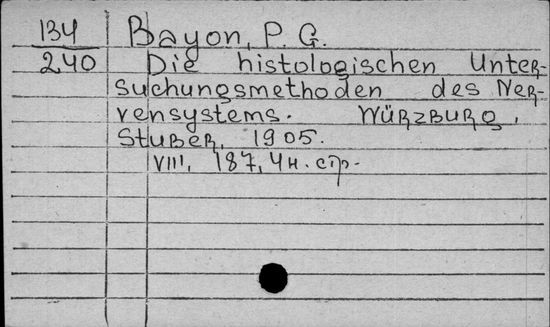 134 Bayon, P. G.
240 Die histologischen Unter-
suchungsmethoden des Ner-
vensystems. Würzburg,
Stuber, 1905.
VIII, 187, 4 н. стр.